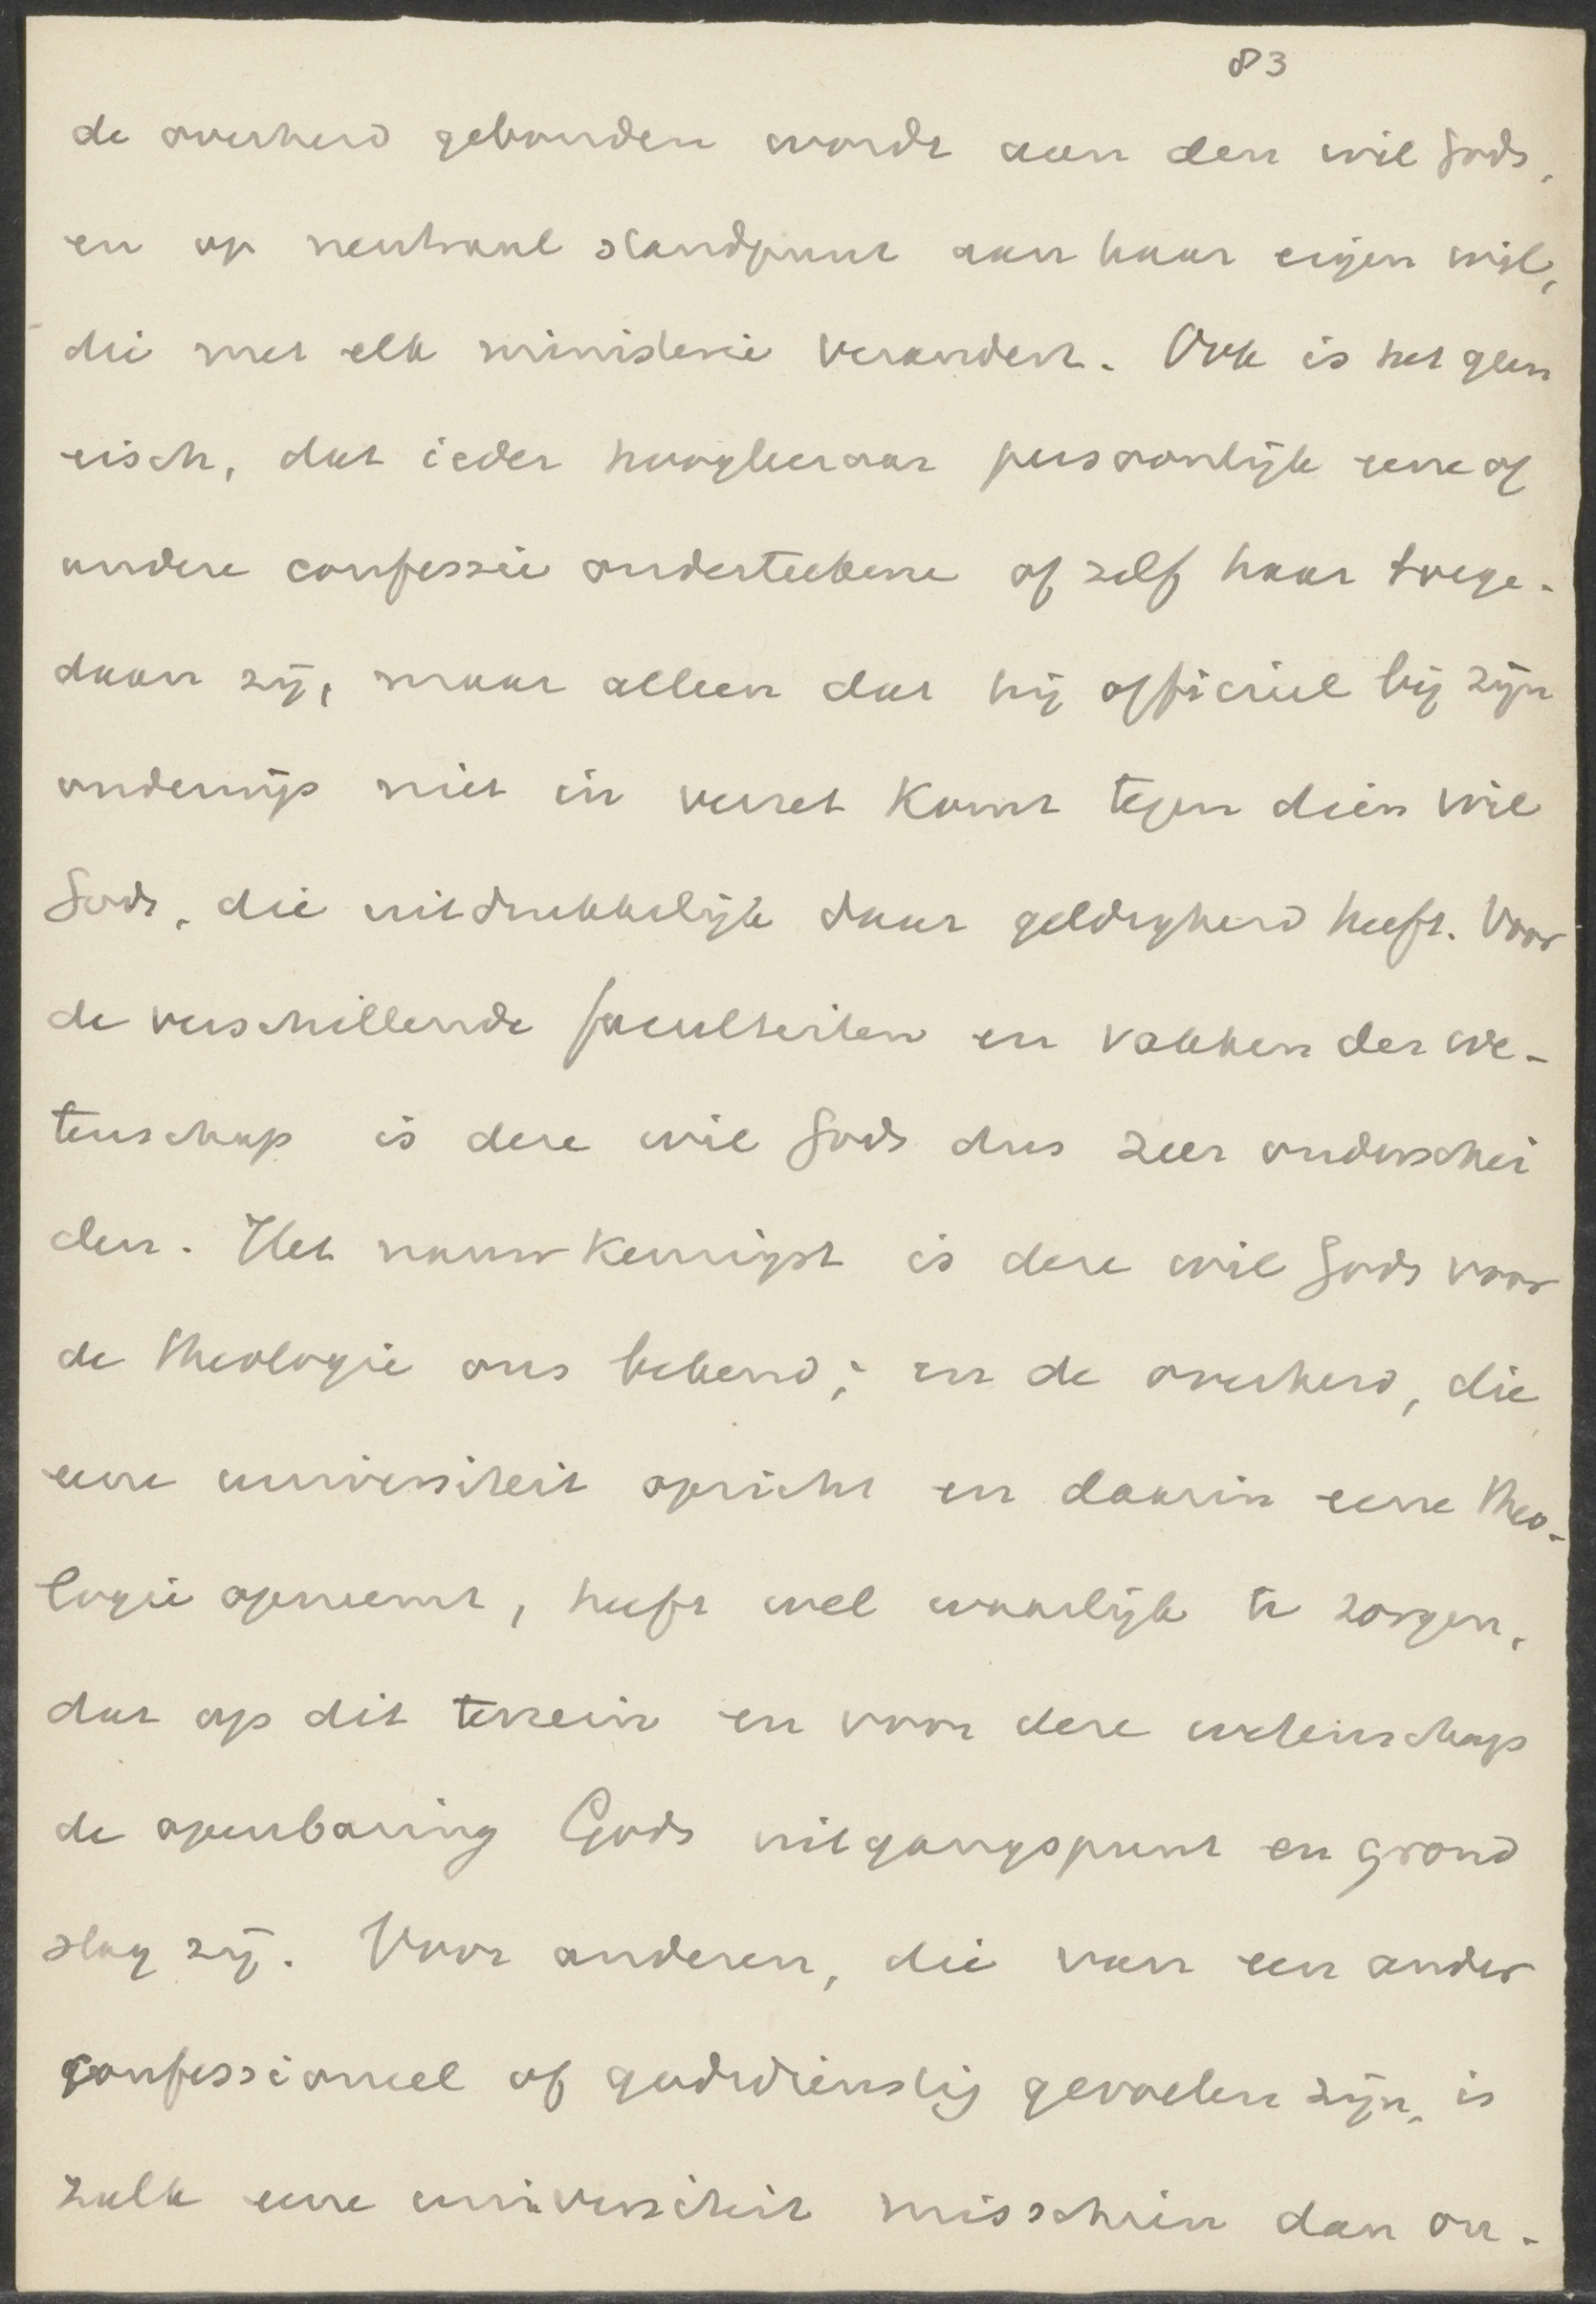 83
de overheid gebonden wordt aan den wil Gods,
en op neutraal standpunt aan haar eigen wil,
die met elk ministerie verandert. Ook is het geen
eisch, dat ieder hoogleeraar persoonlijk eene of
andere confessie onderteekene of zelf haar toege-
daan zij, maar alleen dat hij officieel bij zijn
onderwijs niet in verzet komt tegen dien wil
Gods, die uitdrukkelijk daar geldigheid heeft. Voor
de verschillende faculteiten en vakken der we-
tenschap is deze wil Gods dus zeer onderschei
den. Het nauwkeurigst is deze wil Gods voor
de theologie ons bekend; en de overheid, die
eene universiteit opricht en daarin eene theo-
logie opneemt, heeft wel waarlijk te zorgen,
dat op dit terrein en voor deze wetenschap
de openbaring Gods uitgangspunt en grond
slag zij. Voor anderen, die van een ander
confessioneel of godsdienstig gevoelen zijn, is
zulk eene universiteit misschien dan on-